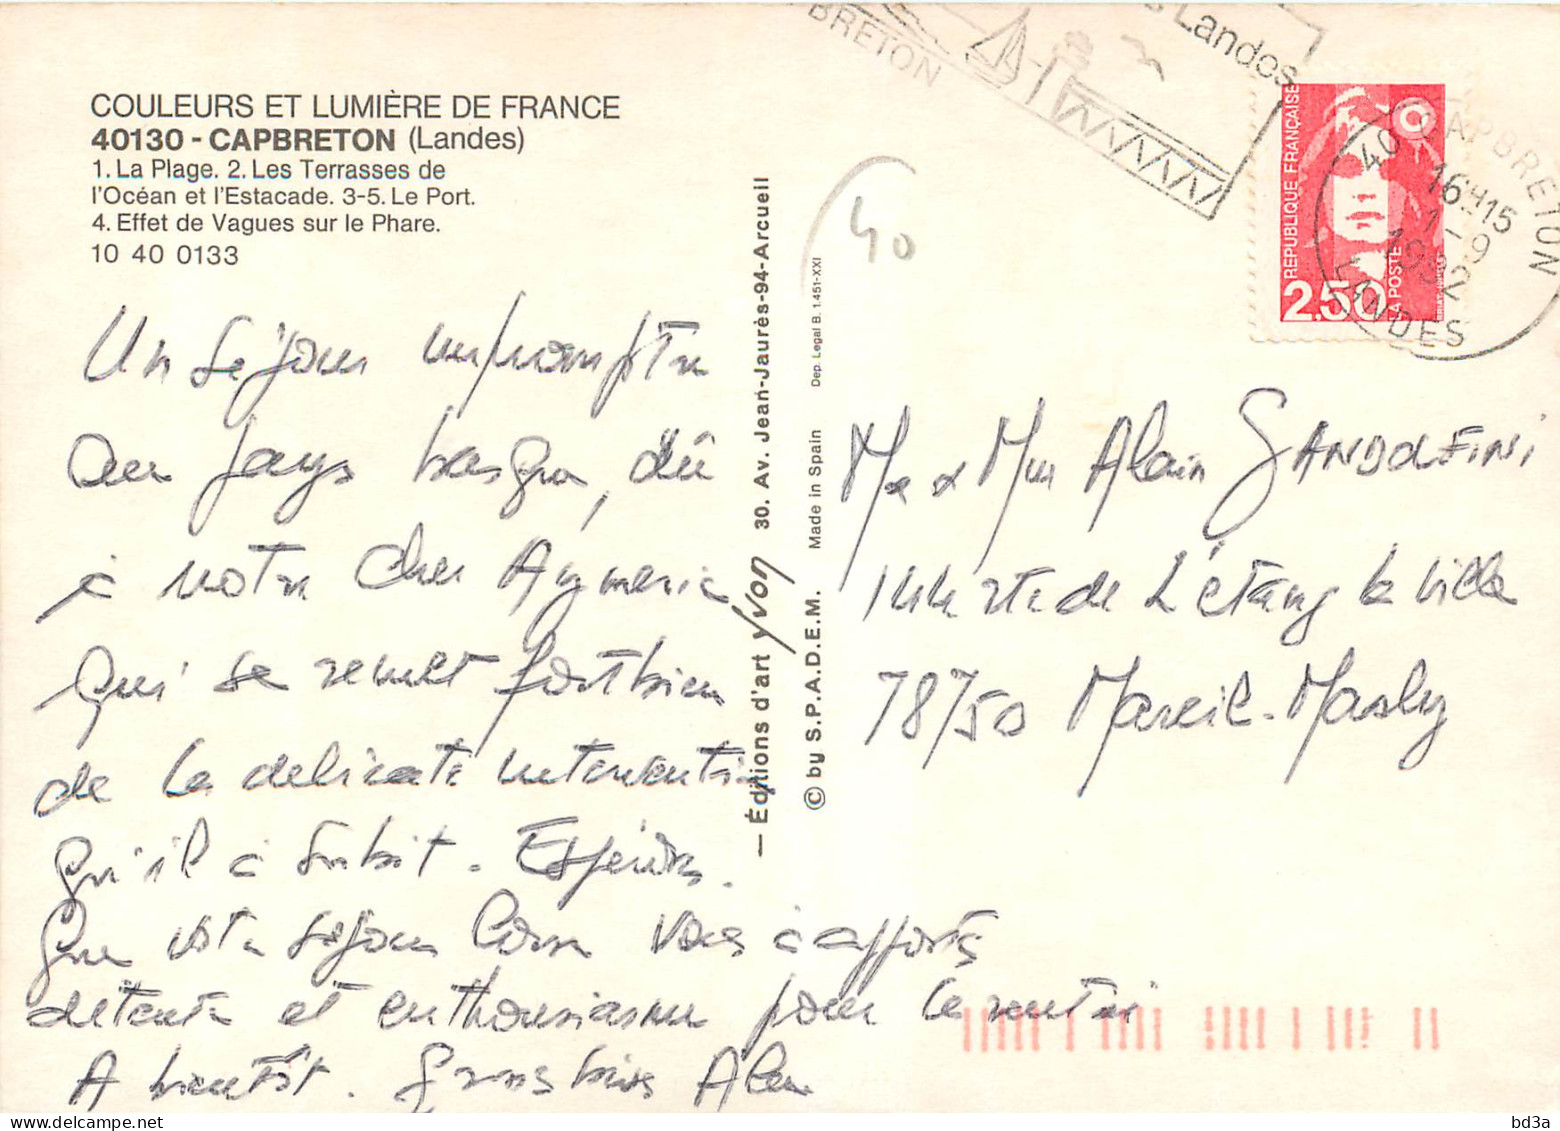 COULEURS ET LUMIÈRE DE FRANCE
40130 - CAPBRETON (Landes)
1. La Plage. 2. Les Terrasses de
l'Océan et l'Estacade. 3-5. Le Port.
4. Effet de Vagues sur le Phare.
10 40 0133
Un séjour impromptu
au pays basque, dû
à votre cher Aymeric
qui se remet fort bien
de la délicate intervention
qu'il a subit. Espérons
que votre séjour Corse vous a apporté
détente et enthousiasme pour la rentrée
A bientôt. Gros bises Alain
— Éditions d'art yvon 30. Av. Jean-Jaurès-94-Arcueil
© by S.P.A.D.E.M. Made in Spain Dep. Legal B. 1.451-XXI
40
BRETON
Landes
RÉPUBLIQUE FRANÇAISE
2,50 LA POSTE
40 CAPBRETON
16H15
1-9
1992
LANDES
Mr & Mme Alain GANDOLFINI
rte de L'étang la ville
78750 Mareil-Marly
bd3a